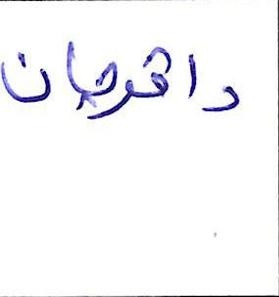 داقرجان